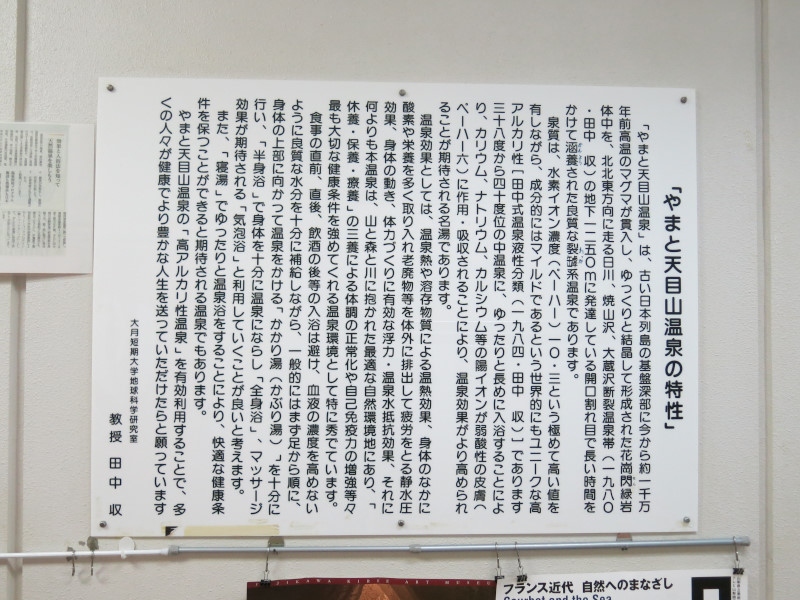 「やまと天目山温泉の特性」
「やまと天目山温泉」は、古い日本列島の基盤深部に今から約一千万
年前高温のマグマが貫入し、ゆっくりと結晶して形成された花崗閃緑岩
体中を、北北東方向に走る日川、焼山沢、大蔵沢断裂温泉帯（一九八〇
・田中　収）の地下一二五〇ｍに発達している開口割れ目で長い時間を
かけて涵養された良質な裂罅系温泉であります。
泉質は、水素イオン濃度（ペーハー）一〇・三という極めて高い値を
有しながら、成分的にはマイルドであるという世界的にもユニークな高
アルカリ性［田中式温泉液性分類（一九八四・田中　収）］であります
三十八度から四十度位の中温泉に、ゆったりと長めに入浴することによ
り、カリウム、ナトリウム、カルシウム等の陽イオンが弱酸性の皮膚（
ペーハー六）に作用・吸収されることにより、温泉効果がより高められ
ることが期待される名湯であります。
温泉効果としては、温泉熱や溶存物質による温熱効果、身体のなかに
酸素や栄養を多く取り入れ老廃物等を体外に排出して疲労をとる静水圧
効果、身体の動き、体力づくりに有効な浮力・温泉水抵抗効果、それに
何よりも本温泉は、山と森と川に抱かれた最適な自然環境地にあり、「
休養・保養・療養」の三養による体調の正常化や自己免疫力の増強等々
最も大切な健康条件を強めてくれる温泉環境として特に秀でています。
食事の直前、直後、飲酒の後等の入浴は避け、血液の濃度を高めない
ように良質な水分を十分に補給しながら、一般的にはまず足から順に、
身体の上部に向かって温泉をかける「かかり湯（かぶり湯）」を十分に
行い、「半身浴」で身体を十分に温泉にならし「全身浴」、マッサージ
効果が期待される「気泡浴」と利用していくことが良いと考えます。
また、「寝湯」でゆったりと温泉浴をすることにより、快適な健康条
件を保つことができると期待される温泉でもあります。
やまと天目山温泉の「高アルカリ性温泉」を有効利用することで、多
くの人々が健康でより豊かな人生を送っていただけたらと願っています
大月短期大学地球科学研究室
教授　田中　収
フランス近代　自然へのまなざし
Courbet and the Sea